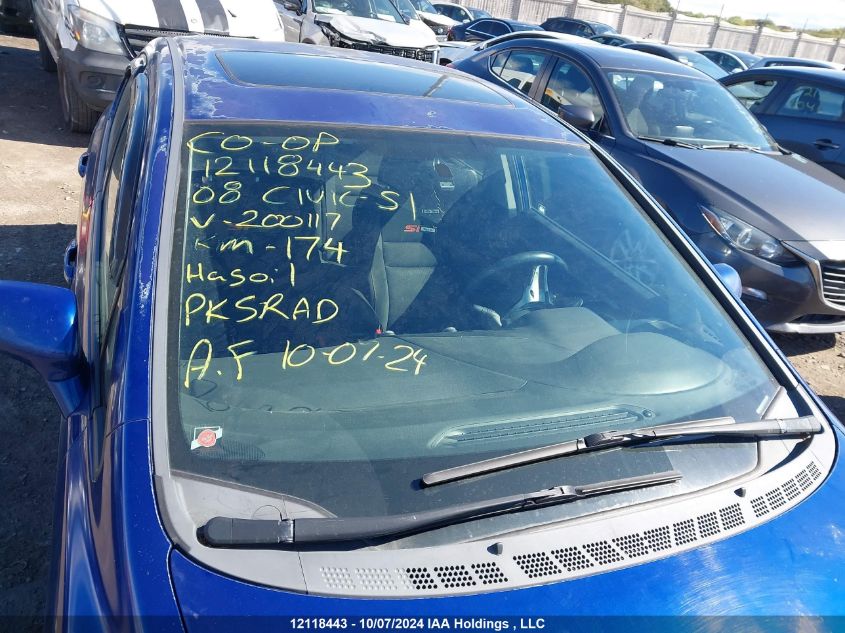 CO-OP
12118443
08 CIVIC SI
V-200117
Km-174
Hasoil
PKSRAD
A.F 10-07-24
Si
12118443 - 10/07/2024 IAA Holdings , LLC